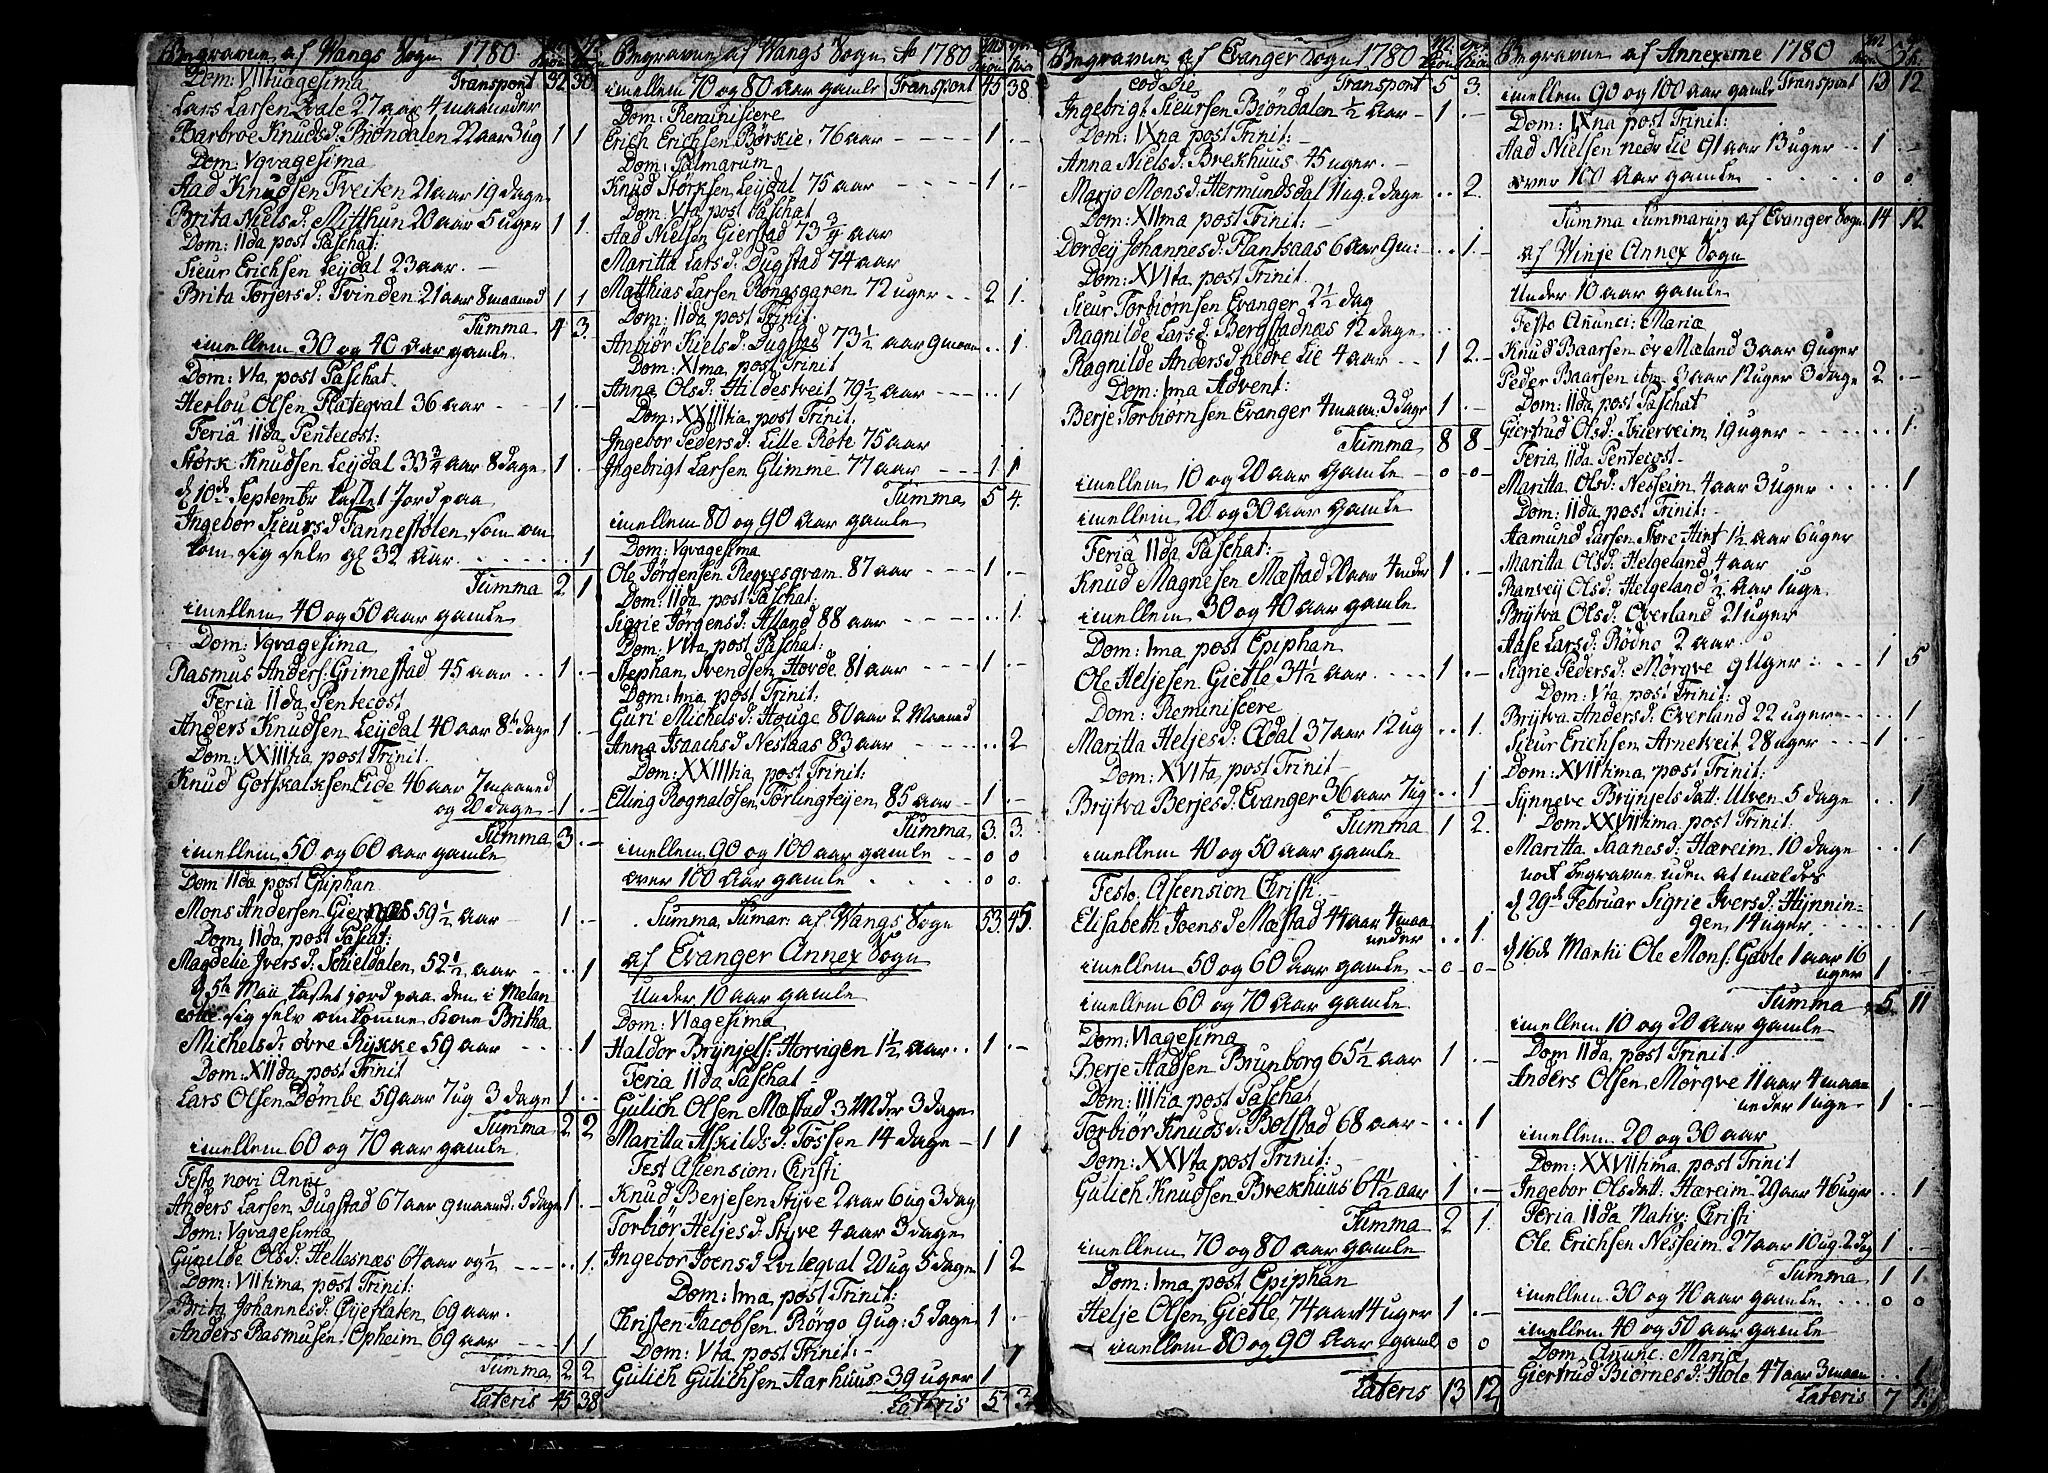 Begravne af Vangs Sogn 1780.
Dom: VIItuagesima Transport 32 30.
Lars Larsen Qvale 27 aar 4 maaneder
Barbroe Knudsd: Biöndalen 22 aar 3 ug 1 1
Dom: Vqvagesima
Aad Knudsen Tveiten 21 aar 19 dage
Brita Nielsd: Mitthun 20 aar 5 uger 1 1.
Dom: IIda post Paschat:
Sieur Erichsen Leijdal 23 aar. -
Brita Torjersd: Tvinden 21 aar 8 maaned 1 1
Summa 4 3.
imellem 30 og 40 aar gamle.
Dom: Vta post Paschat.
Herlou Olsen Flateqval 36 aar - - - 1 . -
Feria IIda Pentecost:
Störk Knudsen Leijdal 33 3/4 aar 8 dage 1 . -
d 10de Septembr kastet Jord paa
Ingebor Sieursd Fannestölen som om
kom sig selv gl 32 Aar. 1
Summa 2 1
imellem 40 og 50 aar gamle
Dom: Vqvagesima
Rasmus Anders: Grimestad 45 aar 1 . -
Feria IIda Pentecost
Anders Knudsen Leijdal 40 aar 8te dage 1 . -
Dom: XXIIItia post Trinit.
Knud Gotskalksen Eide 46 aar 7 maaned
og 20 dage 1 . -
Summa 3 . -
imellem 50 og 60 aar gamle
Dom IIda post Epiphan
Mons Andersen Giernes 59 1/2 aar - 1 . -
Dom: IIda post Paschat:
Magdelie Iversd: Schieldalen 52 1/2 aar . . 1
d 5te Maii kastet jord paa den i Melan
colie sig selv omkomne Kone Britha
Michelsd: övre Rykke 59 aar . . 1
Dom: XIIda post Trinit
Lars Olsen Dömbe 59 aar 7 ug 3 dage 1 . -
Summa 2 2
imellem 60 og 70 aar gamle
Festo novi Anni
Anders Larsen Dugstad 67 aar 9 maaned: 5 dage 1 . -
Dom: Vqvagesima
Gunilde Olsd: Hellesnæs 64 aar og 1/2 - . . 1.
Dom: VIItima post Trinit:
Brita Johannesd: Gijeflaten 69 aar.
Anders Rasmusen Opheim 69 aar - - 1 1
Summa 2 2
Lateris 45 38
Begravne af Vangs Sogn Ao 1780
imellem 70 og 80 Aar gamle Transport 45 38.
Dom: Reminiscere
Erich Erichsen Börkie, 76 aar - - - 1 . -
Dom: Palmarum
Knud Störksen Leijdal 75 aar - - - 1 . -
Dom: Vta post Paschat
Aad Nielsen Gierstad 73 3/4 aar
Maritta Larsd: Dugstad 74 aar
Matthias Larsen Rongsgaren 72 uger - - 2 1.
Dom: IIda post Trinit.
Anbiör Nielsd: Dugstad 73 1/2 aar 9 maan . . 1.
Dom: XIma post Trinit
Anna Olsd: Hildestveit 79 1/2 aar - - - . . 1
Dom: XXIIItia post Trinit.
Ingebor Pedersd: Lille Röte 75 aar
Ingebrigt Larsen Glimme 77 aar - - - 1 1
Summa 5 4.
imellem 80 og 90 Aar gamle
Dom: Vqvagesima
Ole Jörgensen Regvesqvam 87 aar - - - 1 . -
Dom: IIda post Paschat:
Sigrie Jörgensd: Afland 88 aar - - - . . 1.
Dom: Vta post Paschat:
Stephan Svendsen Hovde 81 aar - - - 1 . -
Dom: Ima post Trinit:
Guri Michelsd: Houge 80 aar 2 Maaned
Anna Isaachsd Nestaas 83 aar - - - . . 2
Dom: XXIIItia post Trinit:
Elling Rognaldsen Törlingteijen 85 aar - 1 . -
Summa 3 3.
imellem 90 og 100 aar gamle - - 0 0
over 100 Aar gamle 0 0.
Summa Sumar: af Vangs Sogn 53. 45.
af Evanger Annex Sogn
Under 10 aar gamle
Dom: VIagesima
Haldor Brynjels: Horvigen 1 1/2 aar . . 1 . -
Feria IIda Paschat -
Gulich Olsen Mæstad 3 Mder 3 dage
Maritta Askildsd: Tössen 14 dage - 1 1
Fest Ascension: Christi
Knud Berjesen Styve 2 aar 6 ug 3 dag
Torbiör Heljesd: Styve 4 aar 3 dage
Ingebor Joensd: Qvileqval 20 ug 5 dage 1 2
Dom: Ima post Trinit:
Christen Jacobsen Rörgo 9 ug: 5 dage 1 . -
Dom: Vta post Trinit: -
Gulich Gulichsen Aarhuus 39 uger 1
Lateris 5 3.
Begravne af Evanger Sogn 1780
eod Die Transport 5 3.
Ingebrigt Sieursen Biöndalen 1/2 Aar - 1 . -
Dom: IXna post Trinit:
Anna Nielsd: Brekhuus 45 uger. -
Marjo Monsd: Hermundsdal 11 ug 2 dage . . 2.
Dom: XIIma post Trinit: -
Dordej Johannesd: Flantsaas 6 aar 9 m: . . 1.
Dom: XVIta post Trinit.
Sieur Torbiörnsen Evanger 2 1/2 dag
Ragnilde Larsd: Bergstadnæs 12 dage
Ragnilde Andersd nedre Lie 4 aar - - 1 2.
Dom: Ima Advent:
Berje Torbiörnsen Evanger 4 maan: 3 dage 1 . -
Summa 8 8
imellem 10 og 20 aar gamle - 0 - 0 -
imellem 20 og 30 aar gamle
Feria IIda Paschat: -
Knud Magnesen Mæstad 20 aar 4 mder 1 . -
imellem 30 og 40 aar gamle
Dom: Ima post Epiphan
Ole Heljesen Gietle 34 1/2 aar. 1 . -
Dom: Reminiscere
Maritta Heljesd: Ædal 37 aar 12 ug . . 1.
Dom: XVIta post Trinit -
Brytva Berjesd: Evanger 36 aar 7 ug . . 1
Summa 1 2.
imellem 40 og 50 aar gamle
Festo Ascension Christi -
Elisabeth Joensd Mæstad 44 aar 4 maa
neder . . 1.
imellem 50 og 60 aar gamle - 0 - 0 -
imellem 60 og 70 Aar gamle
Dom: VIagesima
Berje Aadsen Brunborg 65 1/2 aar 1 . -
Dom: IIItia post Paschat
Torbiör Knudsd: Bolstad 68 aar - . . 1
Dom: XXVta post Trinit: -
Gulich Knudsen Brekhuus 64 1/2 aar 1 . -
Summa 2 1.
imellem 70 og 80 aar gamle
Dom: Ima post Epiphan
Helje Olsen Gietle 74 aar 14 uger 1 . -
imellem 80 og 90 Aar gaml 0 0
Lateris 13 12
Begravne af Annexerne 1780
imellem 90 og 100 aar gamle Transport 13 12
Dom: IXna post Trinit:
Aad Nielsen nedr Lie 91 aar 13 uger . . 1 . -
over 100 Aar gamle 0 0
Summa Summarum af Evanger Sogn 14 12
af Winje Annex Sogn
Under 10 aar gamle
Festo Anunci: Mariæ
Knud Baarsen öv Mæland 3 aar 9 uger
Peder Baarsen ibm. 3 aar 12 uger 3 dage 2 . -
Dom: IIda post Paschat
Giertrud Olsd: Skierveim 19 uger - - - . . 1.
Feria IIda Pentecost -
Maritta Olsd: Nesheim 4 aar 3 uger . . 1
Dom: IIda post Trinit: -
Aamund Larsen Store Hirt 1 1/2 aar 6 uger
Maritta Olsd: Helgeland 4 aar
Ranvej Olsd: Helgeland 1/2 Aar 1 uge.
Brytva Olsd: Overland 21 uger
Aase Larsd: Rödno 2 aar.
Sigrie Pedersd: Mörqve 9 Uger - - 1 5
Dom: Vta post Trinit:
Brytva Andersd: Overland 22 uger - - . . 1
Sieur Erichsen Arneteit 28 uger - - 1 . -
Dom: XVIItima post Trinit:
Synneve Brynjelsdatt: Ulven 5 dage . . 1
Dom XXVIItima post Trinit:
Maritta Saanesd: Hæreim 10 dage . . 1
nok begravne uden at meldes
d 29de Februar Sigrie Iversd: Hynnin-
gen 14 uger. 1
d 16de Martii Ole Mons: Gavle 1 aar 16
uger 1 . -
Summa 5 11
imellem 10 og 20 Aar gamle
Dom IIda post Trinit.
Anders Olsen Mörqve 11 aar 4 maan
neder 1 uge - 1 . -
imellem 20 og 30 aar
Dom: XXVIItima post Trinit
Ingebor Olsdatt: Hæreim 29 aar 46 uger . . 1
Feria IIda Nativ: Christi
Ole Erichsen Nesheim 27 aar 10 ug. 2 dag 1 . -
Summa 1 1.
imellem 30 og 40 aar gamle 0 0
imellem 40 og 50 aar gamle
Dom: Anunc: Mariæ
Giertrud Biörnesd: Hole 47 aar 3 maan . . 1
Lateris 7